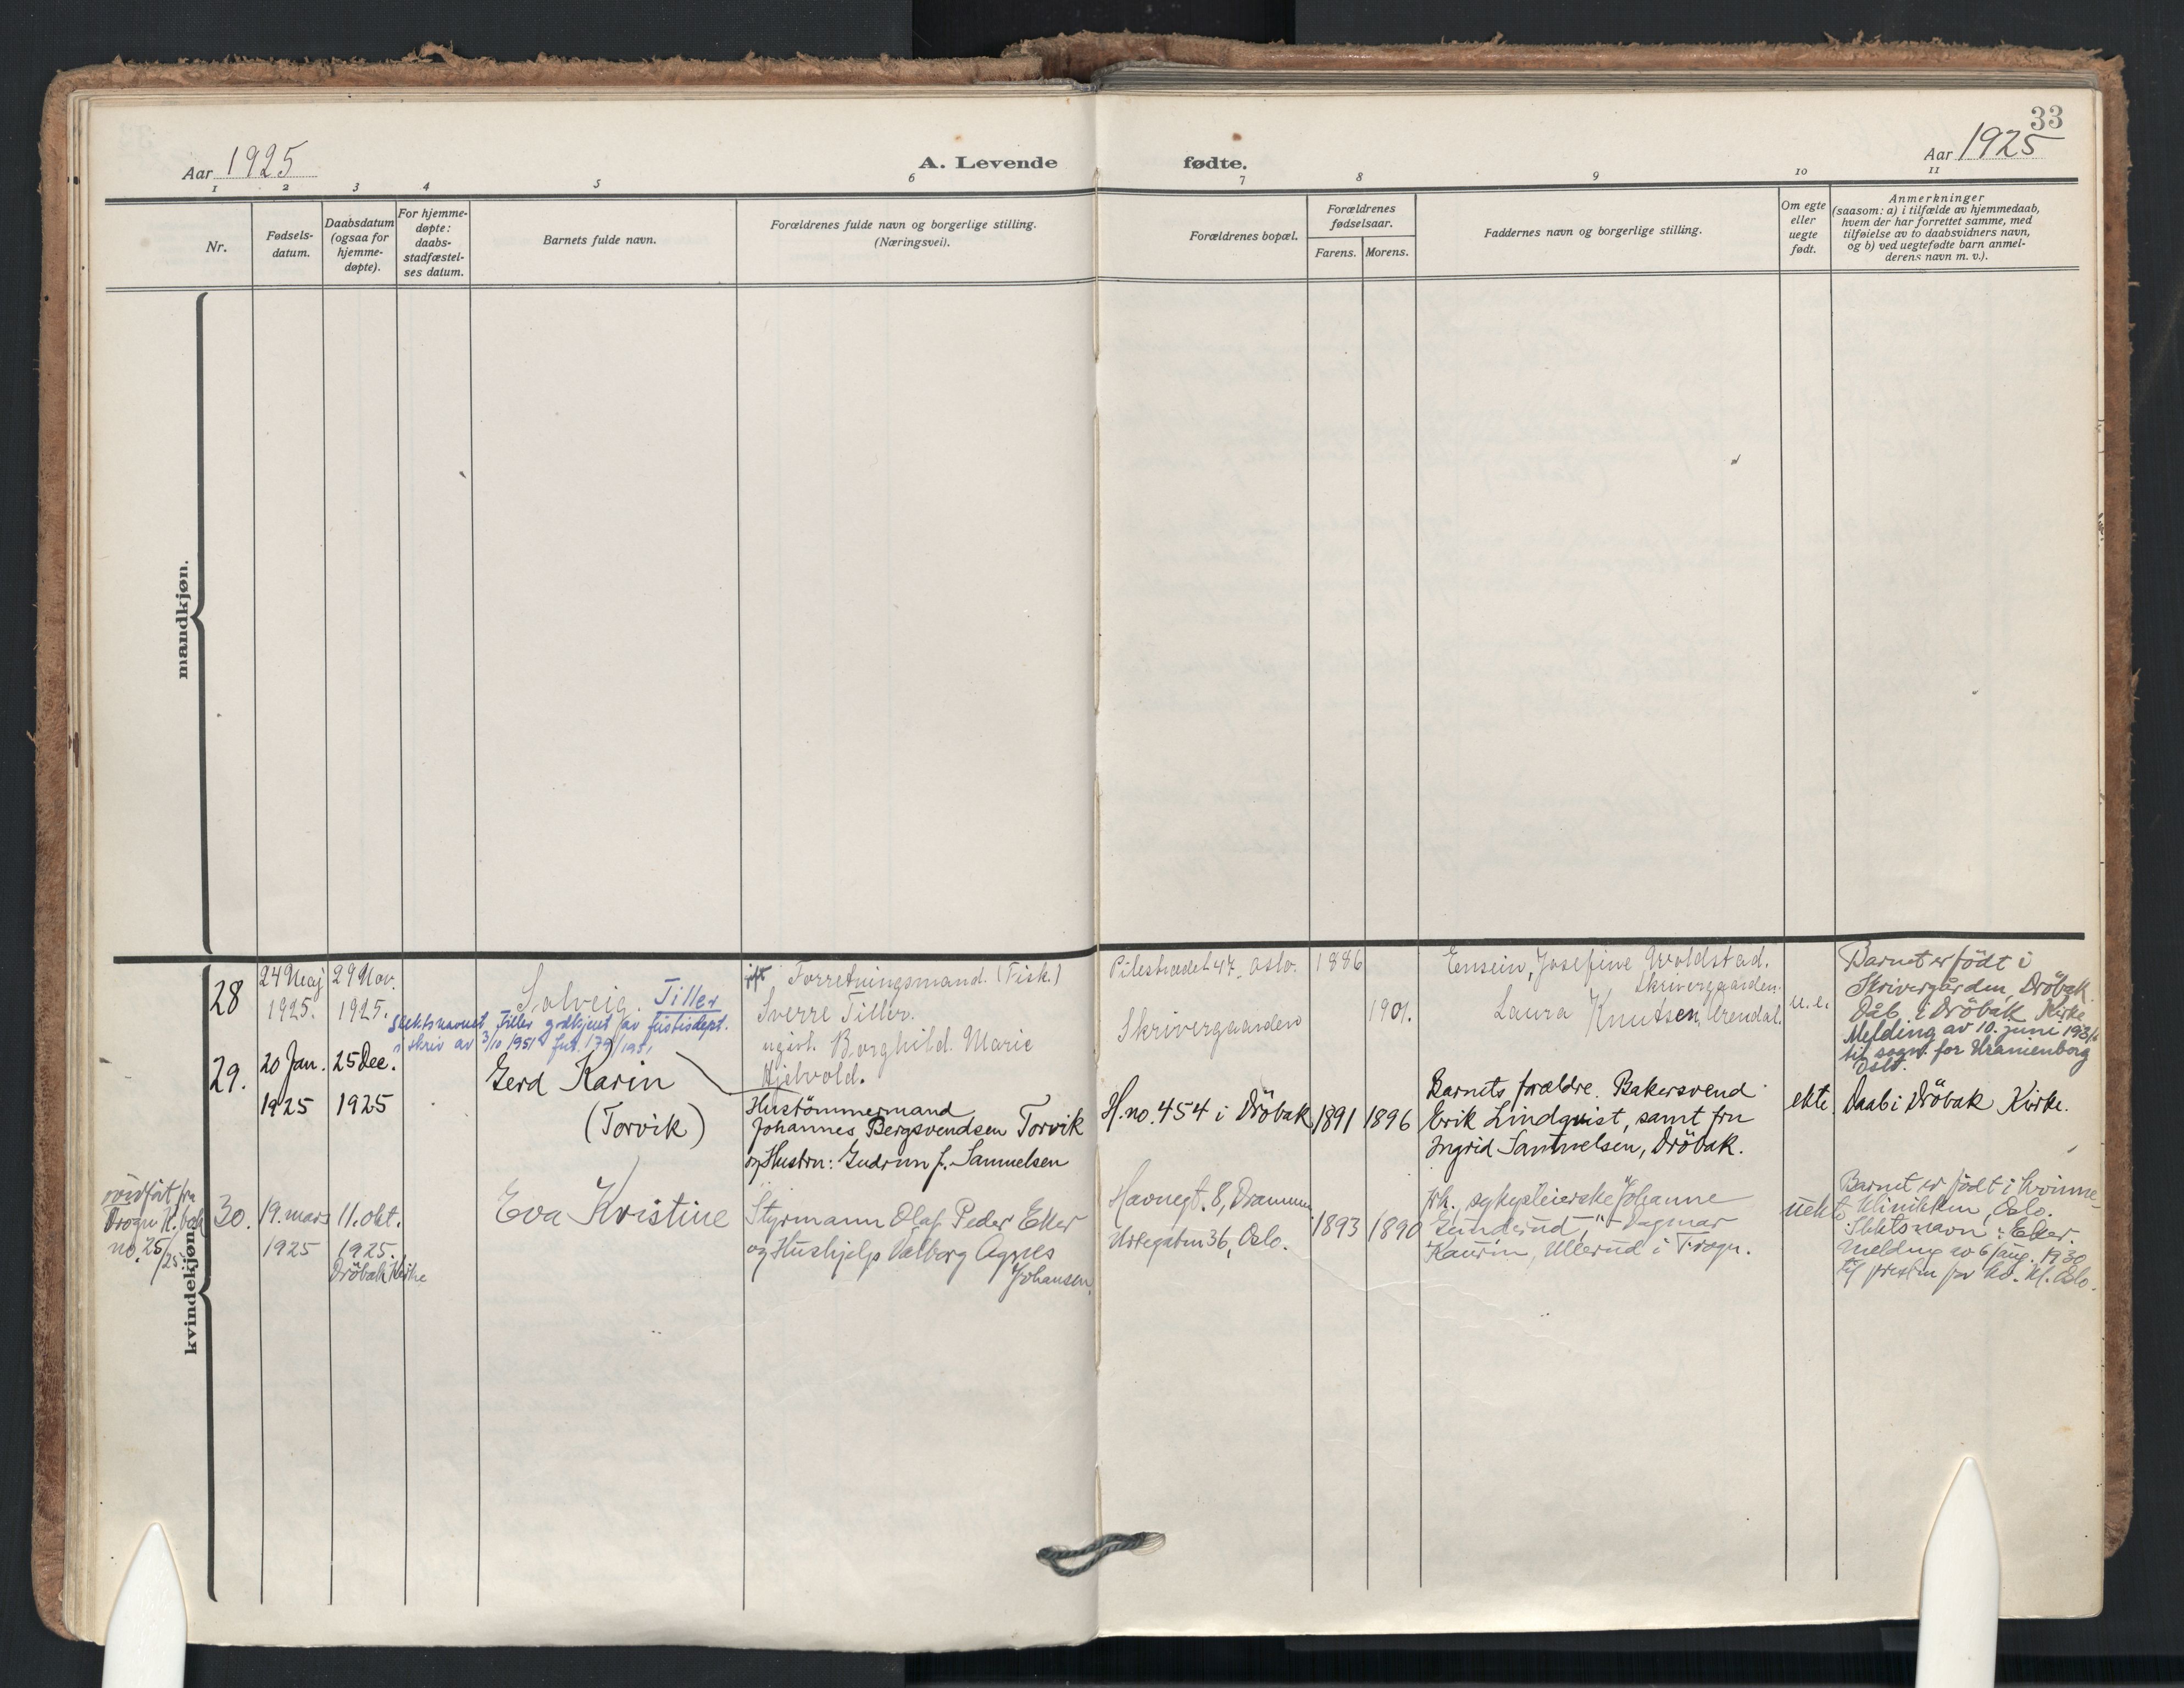 33
Aar 1925
A. Levende
fødte.
Aar 1925
1 2 3 4 5 6 7 8 9 10 11
Nr.
Fødsels-
datum.
Daabsdatum
(ogsaa for
hjemme-
døpte).
For hjemme-
døpte:
daabs-
stadfæstel-
ses datum.
Barnets fulde navn.
Forældrenes fulde navn og borgerlige stilling.
(Næringsvei).
Forældrenes bopæl.
Forældrenes
fødselsaar.
Farens. Morens.
Faddernes navn og borgerlige stilling.
Om egte
eller
uegte
født.
Anmerkninger
(saasom: a) i tilfælde av hjemmedaab,
hvem der har forrettet samme, med
tilføielse av to daabsvidners navn,
og b) ved uegtefødte barn anmel-
derens navn m. v.).
mandkjøn.
kvindekjøn.
28
24 Maj
1925.
29 Nov.
1925.
Solveig. Tiller
Slektsnavnet Tiller godkjent av justisdept.
i skriv av 3/10 1951
Forretningsmand. (Fisk.)
Sverre Tiller.
ugivt. Borghild Marie
Hjelvold.
Pilestrædet 47. Oslo.
Skrivergaarden
1886
1901.
Josefine Woldstad.
Skrivergaarden.
Laura Knutsen, Arendal.
u.e.
Barnet er født i
Skrivergården, Dröbak.
Dåb i Dröbak Kirke
Melding av 10. juni 193
til sogn. for Uranienborg
Oslo.
29.
20 Jan.
1925
25 Dec.
1925
Gerd Karin
(Torvik)
Hustömmermand
Johannes Bergsvendsen Torvik
og Hustru: Gudrun f. Samuelsen
H. no. 454 i Dröbak
1891 1896
Barnets forældre. Bakersvend
Erik Lindqvist, samt fru
Ingrid Samuelsen, Dröbak.
ekte
Daab i Dröbak Kirke.
fra
Drogn K. bok
no. 25/25.
30.
19. mars
1925
11. okt.
1925.
Dröbak Kirke
Eva Kristine
Styrmann Olaf Peder Eker
og Hushjelp Valborg Agnes
Johansen.
Havnegt. 8, Drammen
Urtegaten 36, Oslo.
1893 1890
frk. sykepleierske Johanne
Gunderud, -"- Dagmar
Kaurin, Ullerud i Frogn.
uekte
Barnet er født i Kvinne-
klinikken, Oslo.
Slektsnavn: Eker.
Melding av 6/aug. 1930
til presten for Kv. Kl. Oslo.